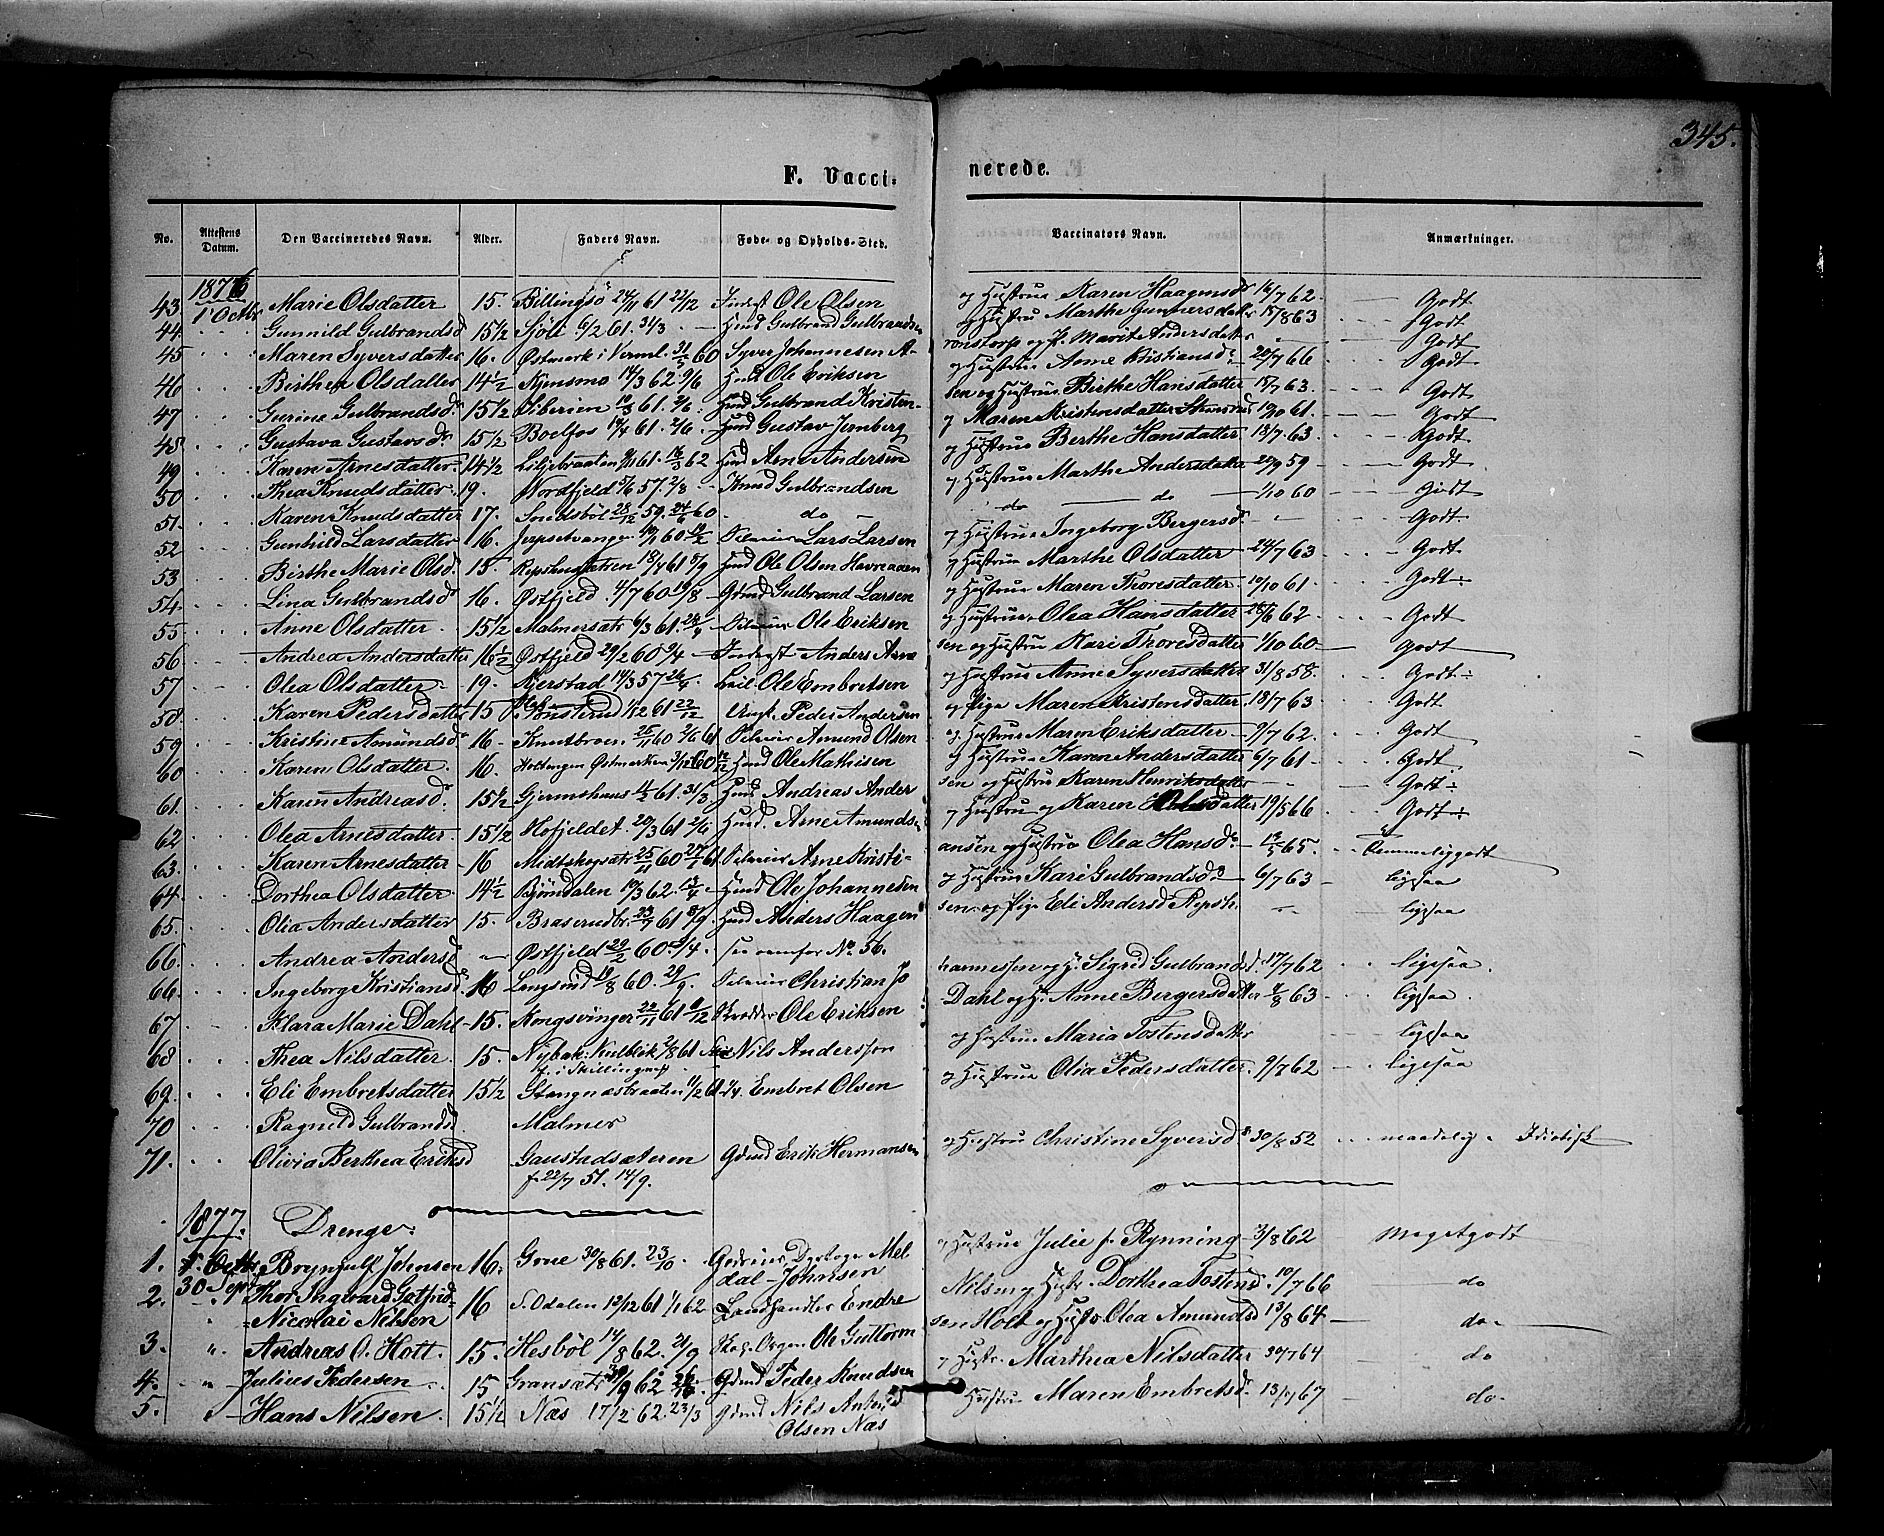 345.
F. Vacci- nerede.
No. Attestens Datum. Den Vaccineredes Navn. Alder. Faders Navn. Føde- og Opholds-Sted. Vaccinators Navn. Anmærkninger.
1876
43 1 Octbr Marie Olsdatter 15. Billingsö 24/11 61 22/12 Inderst Ole Olsen og Hustrue Karen Haagensdr 16/7 62. Godt
44 Gunnild Gulbrandsd 15 1/2 Sjöli 6/2 61. 31/3 Husd Gulbrand Gulbrandsen og Hustrue Marthe Gunnersdatter 15/8 63 Godt
45 Maren Syversdatter 16. Østmark i Verml. 31/5 60 Syver Johannesen A- ronstorp og P. Marit Andersdatter Godt
46 Birthea Olsdatter 14 1/2 Nysmo 14/3 62 9/6 Husd Ole Eriksen og Hustrue Anne Kristiansdr 20/7 66 Godt
47 Gurine Gulbrandsdr 15 1/2 Siberien 10/3 61. 2/6 Husd Gulbrand Kristen- sen og Hustrue Birthe Hansdatter 15/7 63. Godt
48 Gustava Gustavsdr 15 1/2 Boelfos 12/4 61 2/6 Husd Gustav Jernberg og Maren Kristensdatter 12/10 61. Godt
49 Karen Arnesdatter 14 1/2 Liljebraaten 9/11 61. 16/3 62 Husd Arne Andersen og Hustrue Berthe Hansdatter 18/7 63. Godt
50 Thea Knudsdatter 19. Nordfjeld 5/6 57. 2/8 Knud Gulbrandsen og Hustrue Marthe Andersdatter 25/9 59 Godt
51. Karen Knudsdatter 17. Smedsböl 28/12 59. 24/6 60 do do do 1/10 60 Godt
52 Gunhild Larsdatter 16. 60 Lars Larsen og Hustrue Ingeborg Bergersdr Godt
53 Birthe Marie Olsd 15. 18/4 61 8/9 Husd Ole Olsen og Hustrue Marthe Olsdatter 24/7 63 Godt
54. Lina Gulbrandsdr 16. Østfjeld 4/7 60 19/8 Gdmd Gulbrand Larsen og Hustrue Maren Thoresdatter 19/10 61 Godt
55 Anne Olsdatter 15 1/2 Malmersæt 6/3 61. Ole Eriksen og Hustrue Olea Hansdatter 25/6 62 Godt
56 Andrea Andersdatter 16 1/2 Østfjeld 29/2 60 9/4 Inderst Anders Arne sen og Hustrue Kari Thoresdatter 1/10 60 Godt
57 Olea Olsdatter 19. Kjerstad 14/3 57 26/4 Leil. Ole Embretsen og Hustrue Anne Syversdatter 31/8 58. Godt
58. Karen Pedersdatter 15 Tönsterud 1/12 61 22/12 Ungk. Peder Andersen og Pige Maren Kristensdatter 18/7 63 Godt
59 Kristine Amundsdr 16 Knutbroen 25/11 60 2/6 61 Amund Olsen og Hustrue Maren Eriksdatter 9/7 62. Godt
60 Karen Olsdatter. 16. Østmarken 3/12 60 Husd Ole Mathisen og Hustrue Karen Andersdatter 6/7 61 Godt
61. Karen Andreasdr 15 1/2 Gjermshuus 61. 31/3 Husd Andreas Ander sen og Hustrue Karen Henriksdatter Godt
62 Olea Arnesdatter 15 1/2 Hofjeldet. 20/3 61 2/6 Husd. Arne Amundsen og Hustrue og Karen Olsdatter 19/5 66 Godt
63. Karen Arnesdatter 16 Midtskogsætr 25/11 60 Arne Kristi- ansen og Hustrue Olea Hansdr 65. Temmelig godt
64. Dorthea Olsdatter 14 1/2 Björndalen 19/3 62. Husd Ole Johannesen og Hustrue Kari Gulbrandsdr 6/7 63 ligesaa
65. Olia Andersdatter 15. Braserudbr. 61 8/9 Husd Anders Haagen sen og Pige Eli Andersd Repsh. ligesaa
66. Andrea Andersd Østfjeld 29/2 60. 9/4. see ovenfor No 56.
66 Ingeborg Kristiansd 16 Langerud 19/8 60. 29/9. Christian Jo hannessen og H. Sigrid Gulbrandsd. 17/7 62 ligesaa.
67 Klara Marie Dahl 15. Kongsvinger 22/11 61 8/12 Skrædder Ole Eriksen Dahl og H. Anne Bergersdatter 4/8 63 ligesaa.
68 Thea Nilsdatter 15. Nybak. Kulblik 2/8 61 Nils Andersson og Hustrue Maria Tostensdatter ligesaa
f. i Skillingmrk
69. Eli Embretsdatter 15 1/2 Stangnæsbraaten 11/2 61 Embret Olsen og Hustrue Olia Pedersdatter. 9/7 62 ligesaa
70 Ragnild Gulbrandsd. Malmer
71. Olivia Berthea Eriksd Gaustadsæteren Gdmd Erik Hermansen og Hustrue Christine Syversdr 30/8 52 maadelig Idiotisk
f. 22/7 51. 14/9.
1877. Drenge.
1. 30 Sept. Brynjulf Johnsen 16. Grue 30/8 61. 23/10 Mel dal-Johnsen og Hustrue Julie f. Rynning 3/8 62 Meget godt
2. Thor Ingvard Gotfred Nicolai Nilsen 16 S. Odalen 12/12 61 1/1 62 Landhandler Endre Nilsen og Hustr. Dorthea Tostensd. 10/7 66 do
3. Andreas O. Holt. 15. Hesböl 14/8 62. 21/9 Skog. Opsyn. Ole Guttorm sen Holt og Hustr Olea Amundsd 13/8 64 do
4. Julius Pedersen 15 Gransætr 62 Gdmd Peder Knudsen og Hustr. Marthea Nilsdatter 30/7 64 do
5. Hans Nilsen. 15 1/2 Næs 17/2 62. 23/3 Gdmd Nils Anton Olsen Næs Hustrue Maren Embretsdr 13/7 67 do